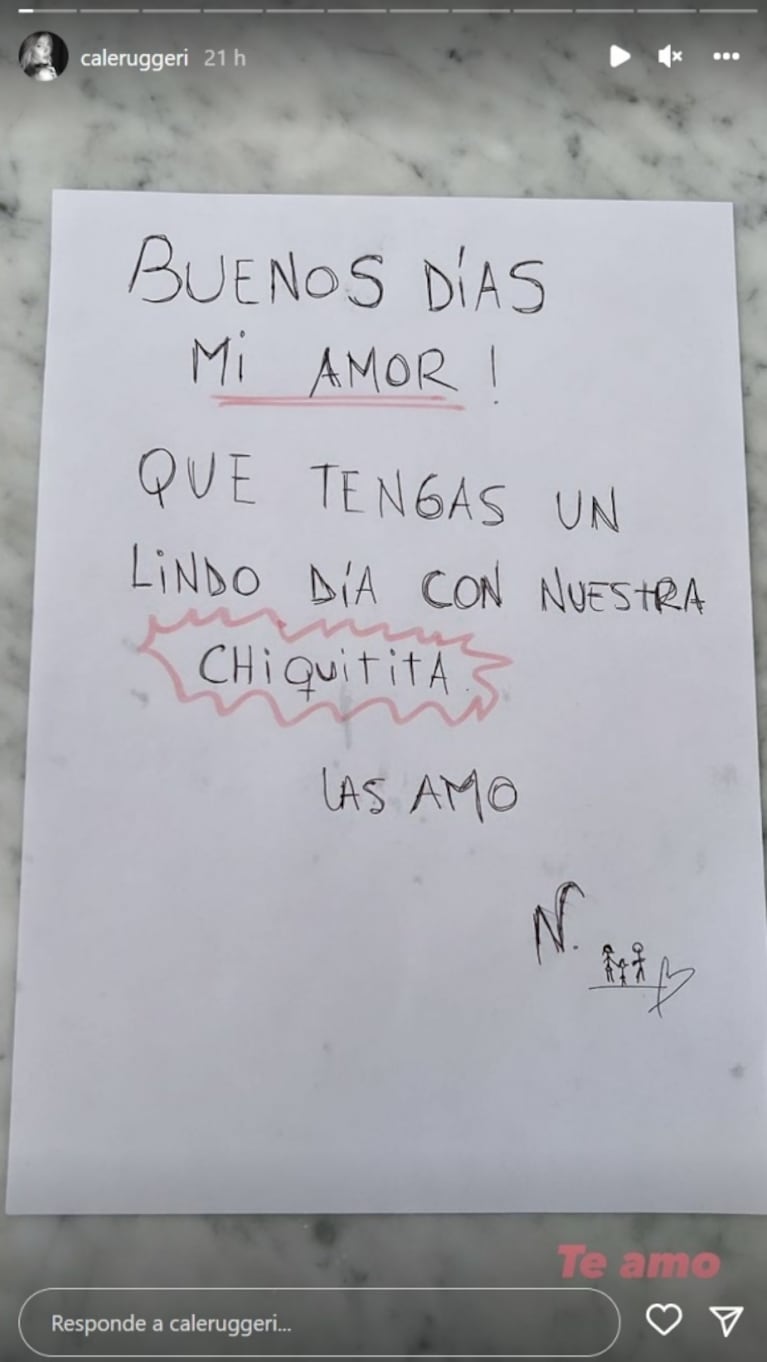 caleruggeri 21 h
BUENOS DÍAS
Mi AMOR!
QUE TENGAS UN
LiNDO DÍA CON NUESTRA
CHiQUiTiTA.
LAS AMO
N.
Te amo
Responde a caleruggeri...